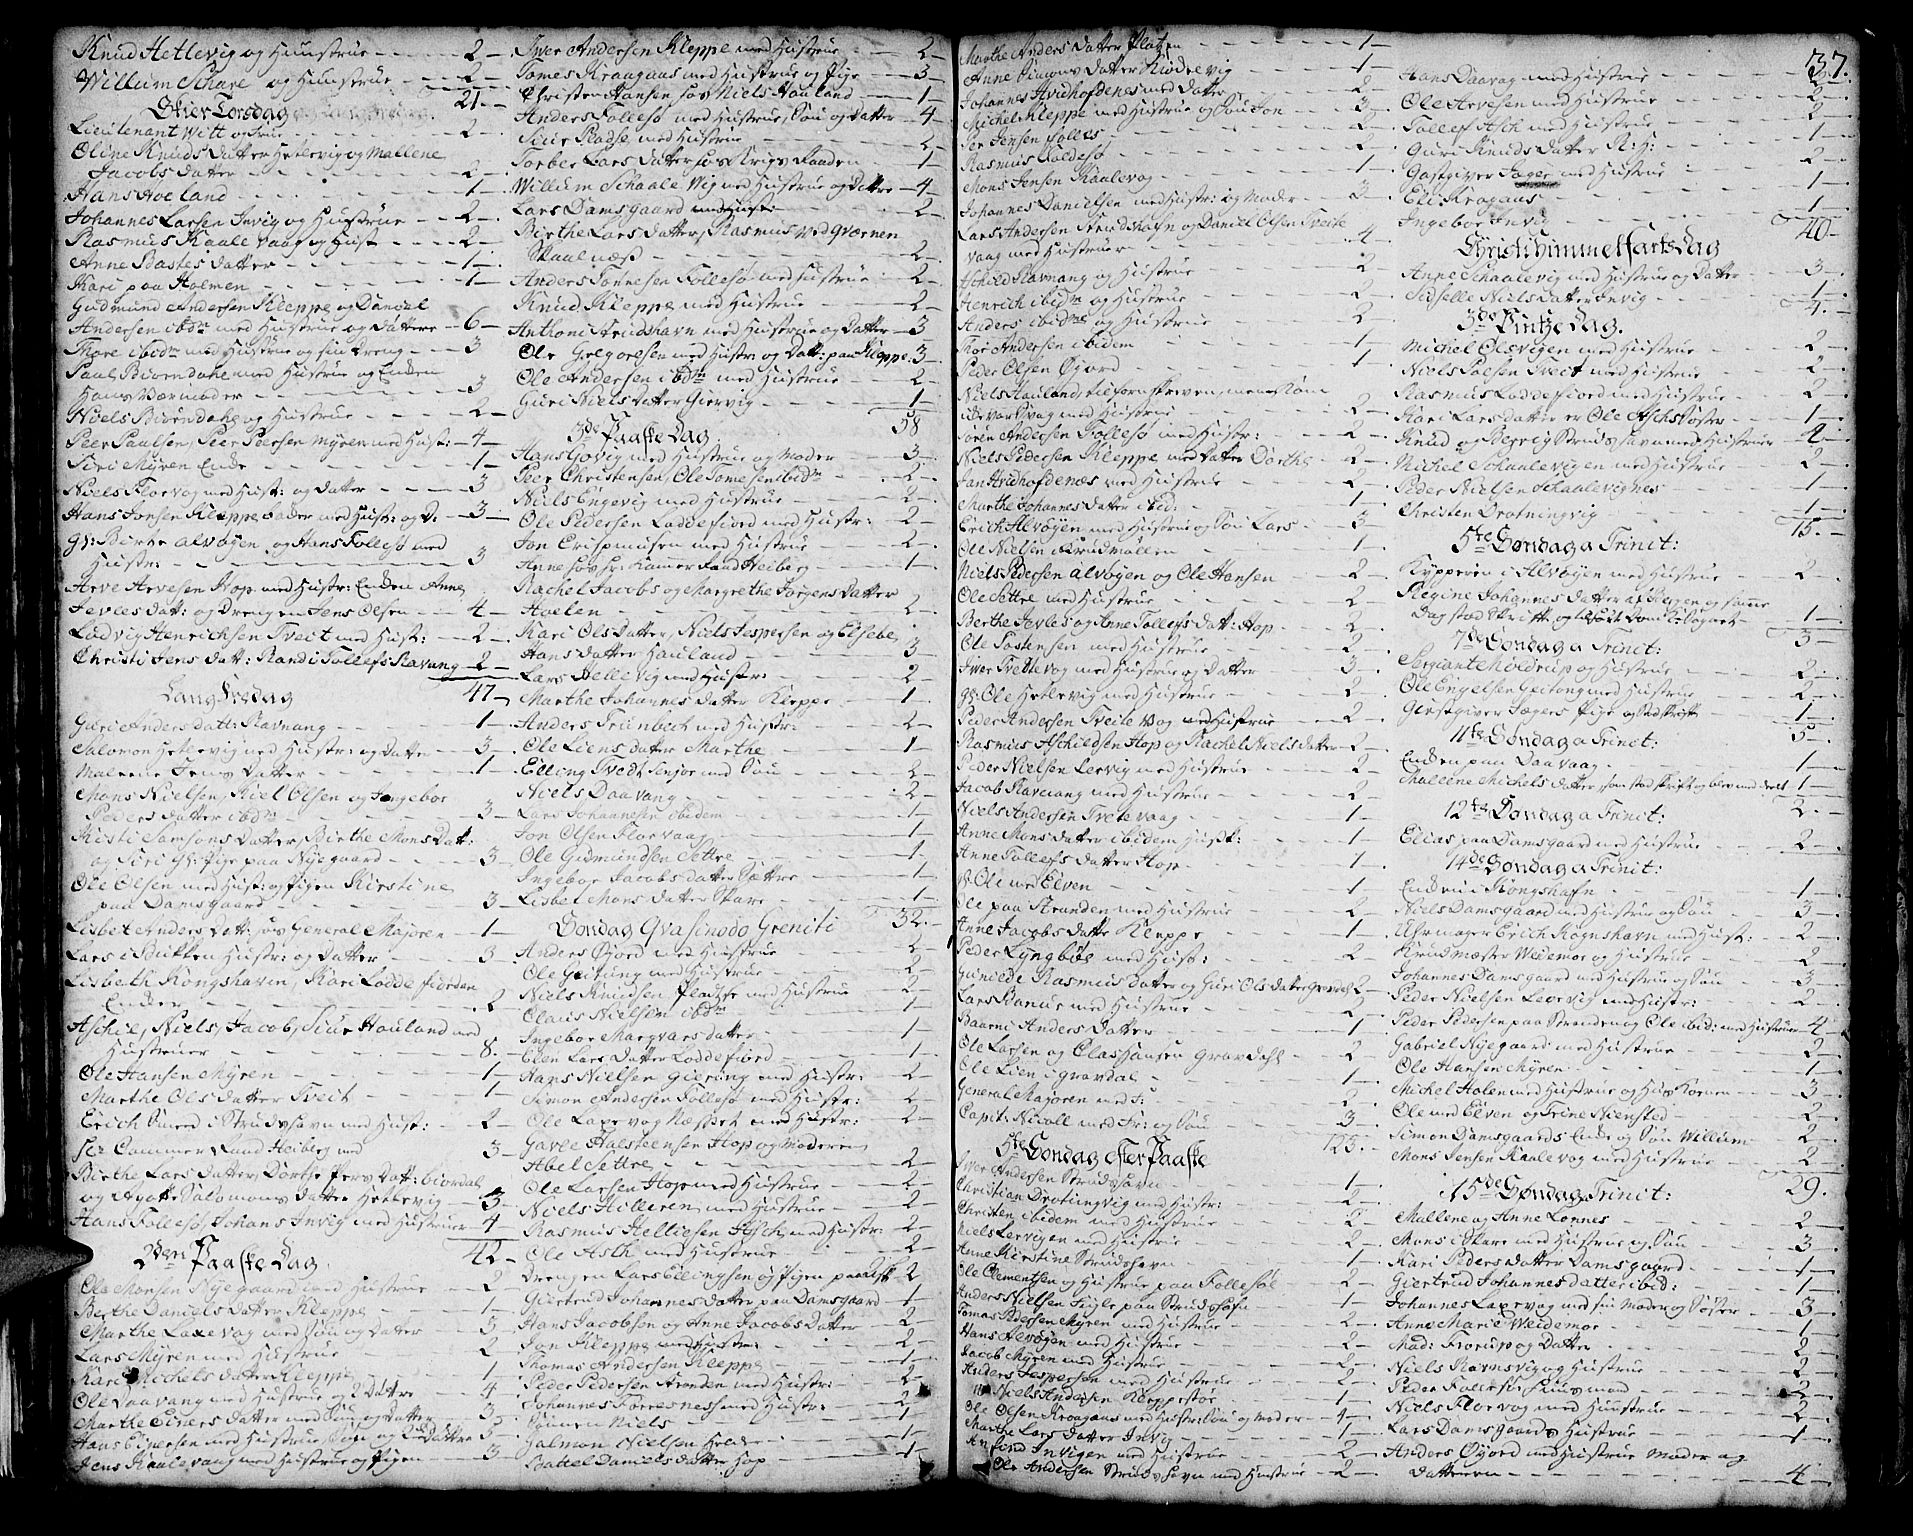 Knud Hetlevig og Hüüstrue - - - 2 -
Willum Skare og Hüüstrue - - 2 -
21 -
Skier Torsdag
Lieutenant Witt og frue - - 2 -
Oline Knuds Datter Hetlevig og Mallene
Jacobs Datter - - - 2 -
Hans Hoeland - - - 1 -
Johannes Larsen Invig og Hustrue - - 2 -
Rasmus Kaale vaag og Hust - - 2 -
Anne Bastes Datter - - - 1 -
Kari paa Holmen - - - 1 -
Gudmund Andersen Kleppe og Daniel
Andersen ibdm med Hustrue og Dattre - 6 -
Thore ibidm med Hustrue og sin Dreng - 3
Paul Biørndahl med Hustrue og Enken
Hans Værmoder - - - 3
Niels Biørndahl og Hustrue - - 2 -
Peer Paulsen, Peer Peersen Myren med Hust: - 4 -
Siri Myren Enke - - - 1 -
Niels Floevog med Hust: og Datter - - 3
Hans Jonsen Kleppe Fader med Hust: og D. - 3 -
Gl: Birte Alvøyen og Hans Follesø med
Hustr: - - - 3
Arve Arvesen Hop med Hustr: Enken Anne
Jevles Dat: og Drengen Jens Olsen - - 4 -
Ludvig Henricksen Tveit med Hust: - - 2 -
Christi Jens Datt: Randi Tollefs Ravang - 2 -
47 -
Lang Fredag
Guri Anders datt: Ravnang - - 1 -
Salomon Hetlevig med Hustr: og Datter - 3 -
Malene Jens Datter - - - 1 -
Mons Nielsen, Kiel Olsen og Ingebor
Peders Datter ibdm - - - 3 -
Kristi Samsons Datter, Birthe Mons Datt:
og Siri Gl: Pige paa Nyegaard - - 3 -
Ole Olsen med Hust: og Pigen Kirstine
paa Damsgaard - - - 3 -
Lisbet Anders Datt: hos General Majoren - 1 -
Lars i Bukken Hustr: og Datter - - 3
Lisbeth Kongshavn, Kari Loddefiorden
Enker - - - 2
Aschil, Niels, Jacob, Siur Hauland med
Hustruer - - - 8.
Ole Hansen Myren - - - 1 -
Marthe Ols Datter Tveit - - - 1 -
Erich Smed i Strudshavn med Hust: - 2 -
Hr: Cammer Raad Heiberg med - - 3 -
Birthe Lars Datter, Dorthe Pers Datt: biordal
og Agate Salomons Datter Hetlevig - 3 -
Hans Follesø, Johans Invig med Hustruer - 4
42 -
2den Paaske Dag
Ole Monsen Nyegaard med Hustrue - - 2
Berthe Daniels Datter Kleppe - - 1 -
Marthe Laxe vog med Søn og Datter - - 3
Lars Myren med Hustrue - - 2
Kari Michels Datter Kleppe - - 1 -
Ole Daavang med Hustrue og 2 Døttre - 4
Marthe Einers Datter med Søn og Datter - 3
Hans Einersen med Hustrue Søn og 2de Døttre - 5
Jens Kaalevang med Hustrue og Pigen - 3
Iver Andersen Kleppe med Hustrue - - 2 -
Tomes Kraagaas med Hustrue og Pige - - 3 -
Christen Hansen hos Niels Hauland - 1 -
Anders Follesø med Hustrue, Søn og Datter - 4 -
Siur Ploese med Hustrue - - 2 -
Torber Lars Datter hos Krigs Raaden - 1 -
Willum Schaale Vig med Hustrue og Dattre - 4 -
Lars Damsgaard med Hust: - - 2 -
Birthe Lars Datter, Rasmus ved Qværnen
Skaalnæss - - - 2 -
Anders Tonnesen Follesø med Hustrue - 2 -
Knud Kleppe med Hustrue - - 2 -
Anthoni Strudshavn med Hustrue og Datter - 3
Ole Gregoresen med Hustr: og Datt: paa Kleppe - 3 -
Ole Andersen ibdm med Hustrue - - 2 -
Guri Niels Datter Giervig - - 1 -
58
3de Paaske Dag
Hans Govig med Hustrue og Moder - - 3 -
Peer Christensen, Ole Tomesen ibidm - 2 -
Niels Engevig med Hustrue - - 2 -
Ole Pedersen Loddefiord med Hustr: - 2 -
Jon Crispinusen med Hustrue - - 2 -
Anne hos hr: Kamer Raad Heiberg - - 1 -
Rachel Jacobs og Margrethe Jørgens Datter
Holen - - - 2 -
Kari Ols Datter, Niels Jespersen og Elsebe
Hans Datter Hauland - - 3
Lars Hellevig med Hustr: - - 2
Marthe Johannes Datter Kleppe - - 1 -
Anders Friinbech med Hustr: - - 2
Ole Liens Datter Marthe - - 1 -
Elling Tvedt Senjor med Søn - - 2 -
Niels Daavang - - - 2 -
Lars Johannesen ibidem - - 1 -
Jon Olsen Floevaag - - 1 -
Ole Gudmundsen Settre - - 1 -
Ingebor Jacobs datter Sættre - - 1 -
Lisbet Mons Datter Skare - - 1 -
32. -
Søndag Qvasimodo Geniti
Anders Øyord med Hustrue - - 2 -
Ole Geitung med Hustrue - - 2 -
Niels Knudsen Pladtze med Hustrue - 2 -
Claus Nielsen ibdm - - 1 -
Ingebor Margvars datter - - 1 -
Elen Lars Datter Loddefiord - - 1 -
Hans Nielsen Giering med Hustr: - 2 -
Simon Andersen Follesø med Hustr: - 2 -
Ole Laxevog Næsset med Hustr: - 2 -
Gavle Halsteensen Hop og Moderen
Abel Settre - - - 2 -
Ole Larsen Hop med Hustrue - - 2 -
Niels Hilleren med Hustrue - - 2 -
Rasmus Helliesen Asch med Hustr: - 2 -
Ole Asch med Hustrue - - 2 -
Drengen Lars Ellingsen og Pigen paa Ask - 2
Giertrud Johannes Datter paa Damsgaard - 1 -
Hans Jacobsen og Anne Jacobs Datter - 2 -
Jon Kleppe med Hustr: - - 2 -
Thomas Andersen Kleppe - - 1 -
Peder Pedersen Stranden med Hustr: - 2 -
Johannes Torresness med Hustr: - - 2 -
Sønnen Niels - - - 1 -
Salmon Nielsen Helde - - 1 -
Battel Daniels Datter Hop - - 1 -
Marthe Anders Datter Platzen - - 1 -
Anne Simons Datter Kiødtevig - - 1 -
Johannes Hvidhofdenes med Datter - 2 -
Michel Kleppe med Hustrue og Søn Jon - 3 -
Per Jensen Follesø - - 2 -
Rasmus Foldesø - - -
Mons Jensen Kaalevog - - 1
Johannes Danielsen med Hustr: og Moder - 3
Lars Andersen Strudshafn og Daniel Olsen Tveite
vaag med Hustruer - - 4 -
Aschild Ravnang og Hustrue - - 2
Henrich ibidm og Hustrue - - 2 -
Anders ibidm og Hustrue - - 2 -
Thor Andersen ibidem - - 1
Peder Olsen Øjord - - 1 -
Niels Hauland, tilforn skreven, mens Søn
ikke var Svag med Hustrue - - 2 -
Søren Andersen Follesø med Hustr: - 2 -
Niels Pedersen Kleppe med Datter Dorthe - 2 -
Jan Hvidhofdenæs med Hustrue - - 2 -
Marthe Johannes Datter ibid: - - 1 -
Erich Alvøyen med Hustrue og Søn Lars - 3 -
Ole Nielsen i Krudmøllen - - 1 -
Niels Pedersen Alvøyen og Ole Hansen - 2 -
Ole Settre med Hustrue - - 2 -
Berthe Jevles og Anne Tollefs Datt: Hop - 2 -
Ole Tostensen med Hustrue - - 2 -
Iver Tvettevog med Hustrue og Datter - 3 -
gl: Ole Hetlevig med Hustrue - - 2 -
Peder Andersen Tveite Vog med Hustrue - 2 -
Rasmus Aschildsen Hop og Rachel Niels Datter - 2 -
Peder Nielsen Lervig med Hustrue - 2 -
Jacob Ravnang med Hustrue - - 2 -
Niels Andersen Trettevaag - - 1 -
Anne Mons Datter ibidem Hust: - - 1 -
Anne Tollefs Datter Hop - - 1 -
gl: Ole med Elven - - 1 -
Ole paa Stranden med Hustrue - - 2 -
Anne Jacobs Datter Kleppe - - 1 -
Peder Lyngbøe med Hust: - - 2 -
Gunilde Rasmus Datter og Guri Ols Datter Gravdal 2 -
Lars Banus med Hustrue - - 2 -
Baarni Anders Datter - - 1 -
Ole Larsen og Clas Hansen Gravdahl - 2 -
Ole Lien i Gravdal - - 1 -
General Majoren med F: - - 2 -
Capit: Nicoll med Fr: og Søn - - 3 -
125. -
5te Søndag efter Paaske
Iver Andersen Strudshavn - - 1 -
Christian Drotningvig med Hustr: - 2 -
Christen ibidem med Hustrue - - 2 -
Niels Lervigen med Hustrue - - 2
Anne Kirstine Strudshavn - - 1 -
Ole Clementsen og Hustrue paa Follesøe - 2 -
Anders Nielsen Fugle paa Strudshafn - 1 -
Tomas Pedersen Myren med Hustrue - 2 -
Hans Alvøyen med Hustrue - - 2 -
Jacob Myren med Hustrue - - 2 -
Anders Jespersen med Hustrue - - 2 -
Niels Andersen Kleppestøe - - 1 -
Ole Olsen Kroagaas med Hustr: Søn og Moder - 4 -
Marthe Lars Datter Invig - - 1 -
Anfind Invigen med Hustrue - - 2 -
Ole Andersen Strudshavn med Hustrue - 2 -
37.
Hans Daavag med Hustrue - - 2 -
Ole Arvesen med Hustrue - - 2 -
Tollef Asch med Hustrue - - 2 -
Guri Knuds Datter R: H: - - 1 -
Gastgiver Jager med Hustrue - - 2 -
Eli Kragaas - - 1 -
Ingebor Invig - - 1 -
40 -
Christi himmelfarts Dag
Anne Schaalevig med Hustrue og Datter - 3 -
Sidselle Niels Datter Invig - - 1 -
4. -
3de Pintze Dag.
Michel Olsvigen med Hustrue - - 2 -
Niels Poesen Tveit med Hustrue - - 2 -
Rasmus Loddefiord med Hustrue - - 2 -
Kari Lars datter er Ole Aschs Søster - 1 -
Knud og Berrig Strudshavn med Hustruer - 4 -
Michel Schaalevigen med Hustrue - - 2 -
Peder Nielsen Schaalevignes - - 1 -
Christen Drotningvig - - 1 -
15. -
5te Søndag a Trinit:
Kypperen i Alvøyen med Hustrue - - 2 -
Regine Johannes Datter af Bergen og samme
Dag stod Skrift - - 1 -
3 -
7de Søndag a Trinit:
Sergiant Moldrup og Hustrue - - 2 -
Ole Engelsen Geitong med Hustrue - 2 -
Giestgiver Jægers Pige - - 1 -
5 -
11te Søndag a Trinit:
Enken paa Daavaag - - 1 -
Mallene Michels datter, som stod skrift og blev med deelt 1 -
2. -
12te Søndag a Trinit:
Elias paa Damsgaard med Hustrue - 2 -
14de Søndag a Trinit:
Enken i Kongshafn - - 1 -
Niels Damsgaard med Hustrue og Søn - 3 -
Uhrmager Erich Kognshavn med Hust: - 2 -
Krudmæster Weidemos og Hustrue - 2 -
Johannes Damsgaard med Hustrue og Søn - 3 -
Peder Nielsen Levevig med Hustr: - 2 -
Peder Pedersen paa Stranden og Ole ibid: med Hustruer - 4 -
Gabriel Nyegaard med Hustrue - - 2 -
Ole Hansen Myren - - 1 -
Michel Holen med Hustrue og Huus Konen - 3 -
Ole med Elven og Trine Niensted - 2 -
Simon Damsgaards Enke og Søn Willum - 2 -
Mons Jensen Kaale vog med Hustrue - 2 -
29. -
15de Søndag a Trinit:
Mallene og Anne Lonnes - - 2 -
Mons i Skare med Hustrue og Søn - 3 -
Kari Peders Datter Damsgaard - - 1 -
Giertrud Johannes datter ibid: - - 1 -
Johannes Laxevog med sin Moder og Søster - 3 -
Anne Marie Weidemos - - 1 -
Mad: Frorup og Datter - - 2 -
Niels Ravnsvig og Hustrue - - 2 -
Peder Follesøe Huusmand - - 2 -
Niels Floevog med Hustrue - - 2 -
Lars Damsgaards Hustrue - - 1 -
Anders Øyord med Hustrue Moder og
Datteren - - - 4 -